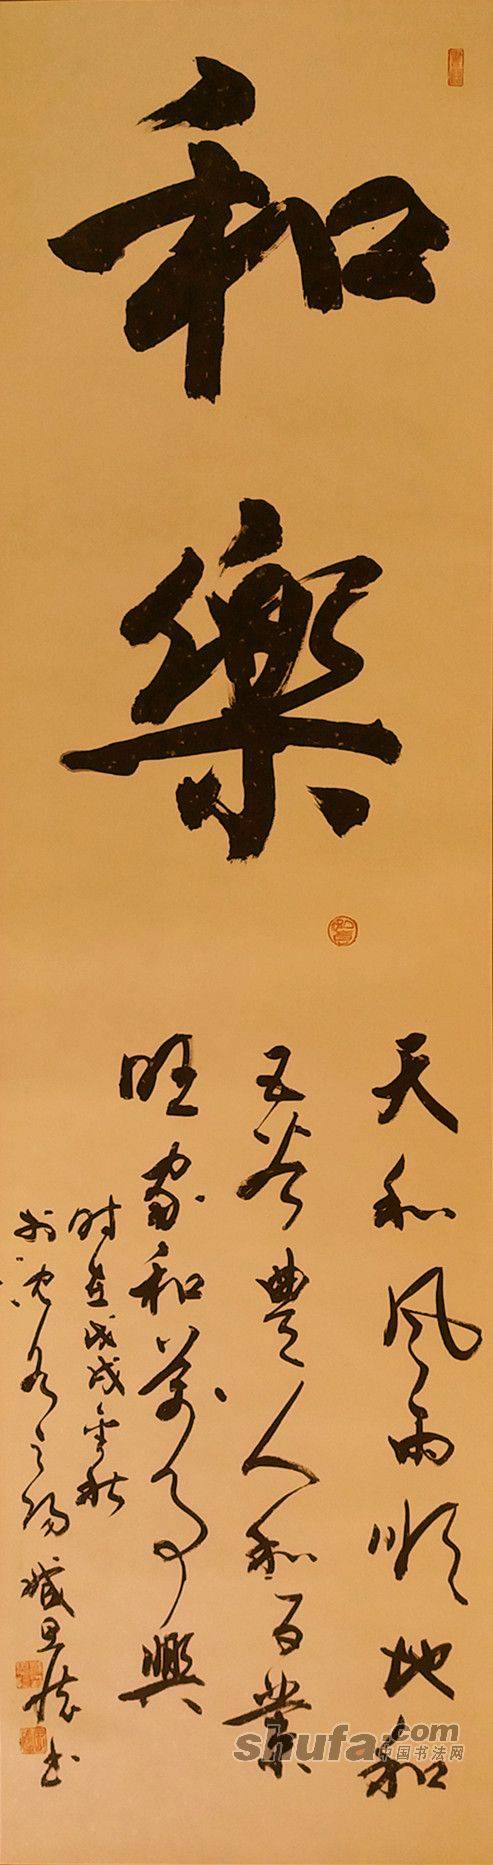 和樂
天和风雨順地和
五谷豐人和百業
旺家和萬事興
时在戊戌金秋
於沈水之陽 臧旦懷书
shufa.com
中国书法网